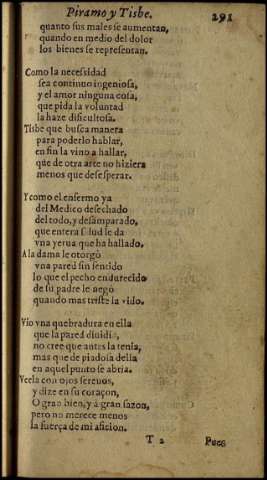 Piramo y Tisbe. 291
quanto sus males se aumentan,
quando en medio del dolor
los bienes se representan.
Como la necessidad
sea continuo ingeniosa,
y el amor ninguna cosa,
que pida la voluntad
la haze dificultosa.
Tisbe que busca manera
para poderlo hablar,
en fin la vino a hallar,
que de otra arte no hiziera
menos que desesperar.
Y como el enfermo ya
del Medico desechado
del todo, y desamparado,
que entera salud le da
vna yerua que ha hallado,
A la dama le otorgò
vna pared sin sentido
lo que el pecho endurecido
de su padre le negò
quando mas triste la vido.
Vio vna quebradura en ella
que la pared diuidia,
no cree que antes la tenia,
mas que de piadosa della
en aquel punto se abria.
Veela con ojos serenos,
y dize en su coraçon,
O gran bien, y à gran sazon,
pero no merece menos
la fuerça de mi aficion.
T 2 Pues